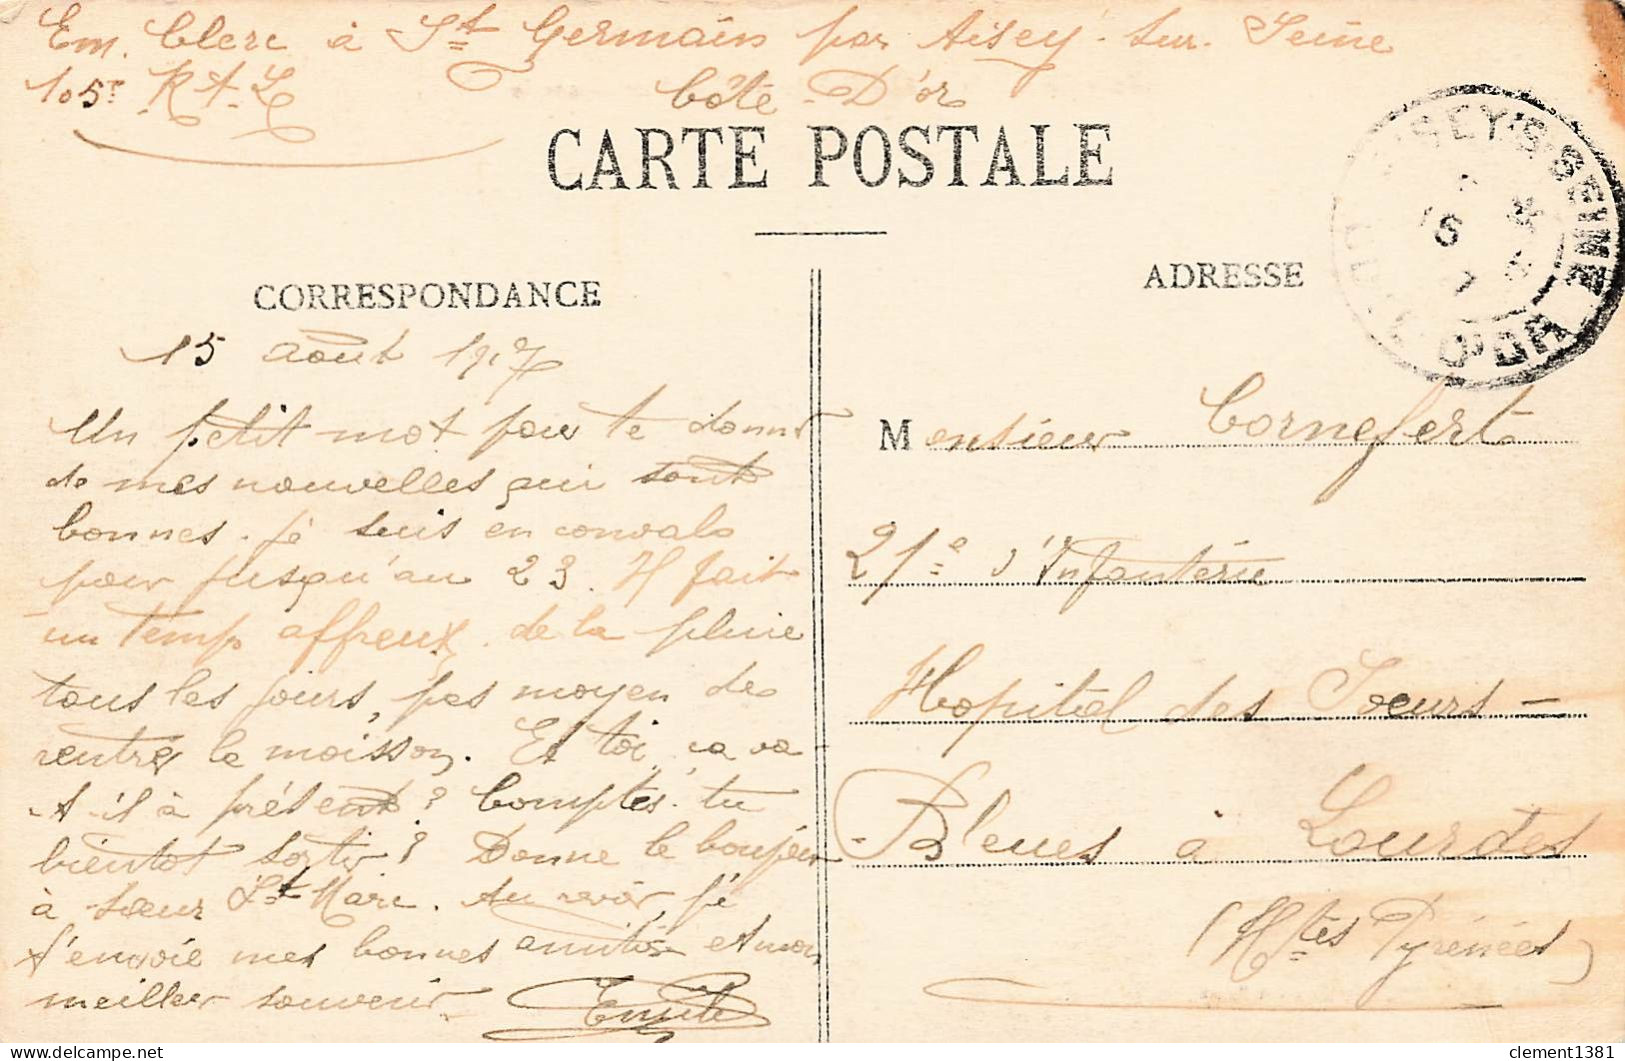 Em. Clerc à St Germain par Aisey-sur-Seine
105e R.A.L Côte-D'or
CARTE POSTALE
CORRESPONDANCE
15 août 1917
Un petit mot pour te donner
de mes nouvelles qui sont
bonnes. je suis en convalo
pour jusqu'au 23. Il fait
un temps affreux. de la pluie
tous les jours, pas moyen de
rentrer la moisson. Et toi, ça va-
t-il à présent? Comptes-tu
bientot sortir? Donne le bonjour
à sœur St Marc. Au revoir, je
t'envoie mes bonnes amitiés et mon
meilleur souvenir
Emile
ADRESSE
Monsieur Cornefert
21e d'Infanterie
Hopital des Sœurs-
Bleues à Lourdes
(Htes Pyrénées)
clement1381